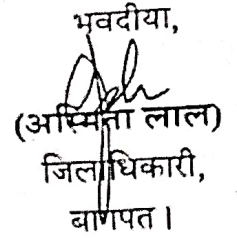 भवदीया,
(अस्मिता लाल)
जिलाधिकारी,
बागपत।